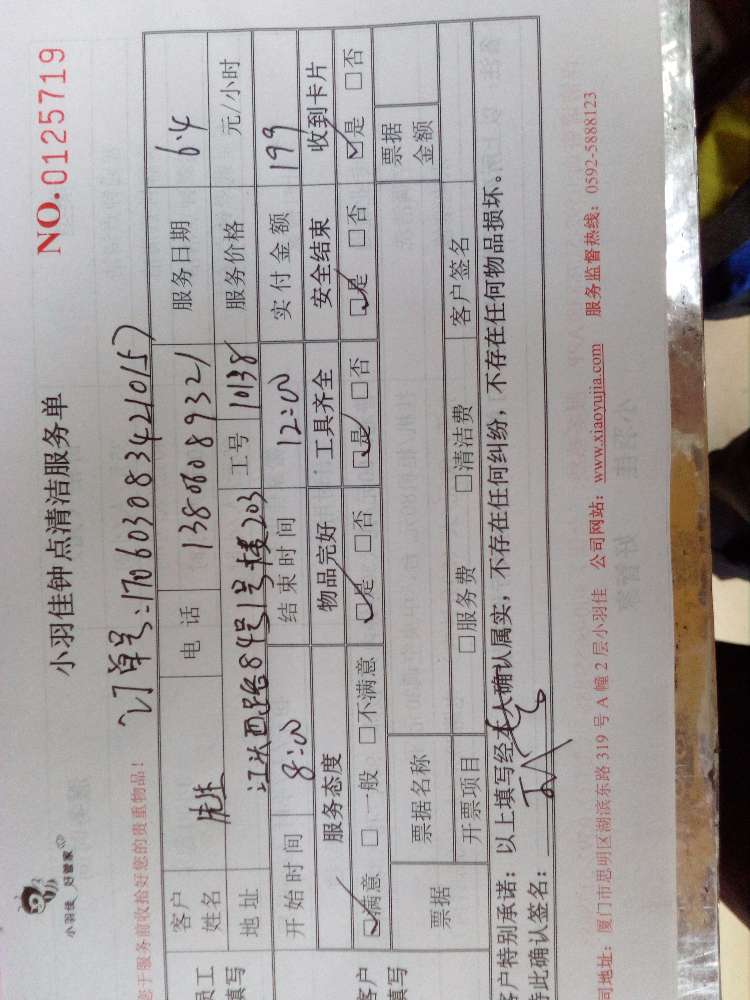 小羽佳 好管家
小羽佳钟点清洁服务单
NO.0125719
您于服务前收拾好您的贵重物品!
订单号:170603083421015
员工填写
客户姓名 先生 电话 13806089321 服务日期 6.4
地址 江头西路84号1号楼203 工号 10138 服务价格 元/小时
开始时间 8:00 结束时间 12:00 实付金额 199
客户填写
服务态度 物品完好 工具齐全 安全结束 收到卡片
☑满意 □一般 □不满意 ☑是 □否 ☑是 □否 ☑是 □否 ☑是 □否
票据 票据名称 票据金额
开票项目 □服务费 □清洁费 客户签名
客户特别承诺:以上填写经本人确认属实,不存在任何纠纷,不存在任何物品损坏。
特此确认签名:
司地址:厦门市思明区湖滨东路319号A幢2层小羽佳 公司网站:www.xiaoyujia.com 服务监督热线:0592-5888123